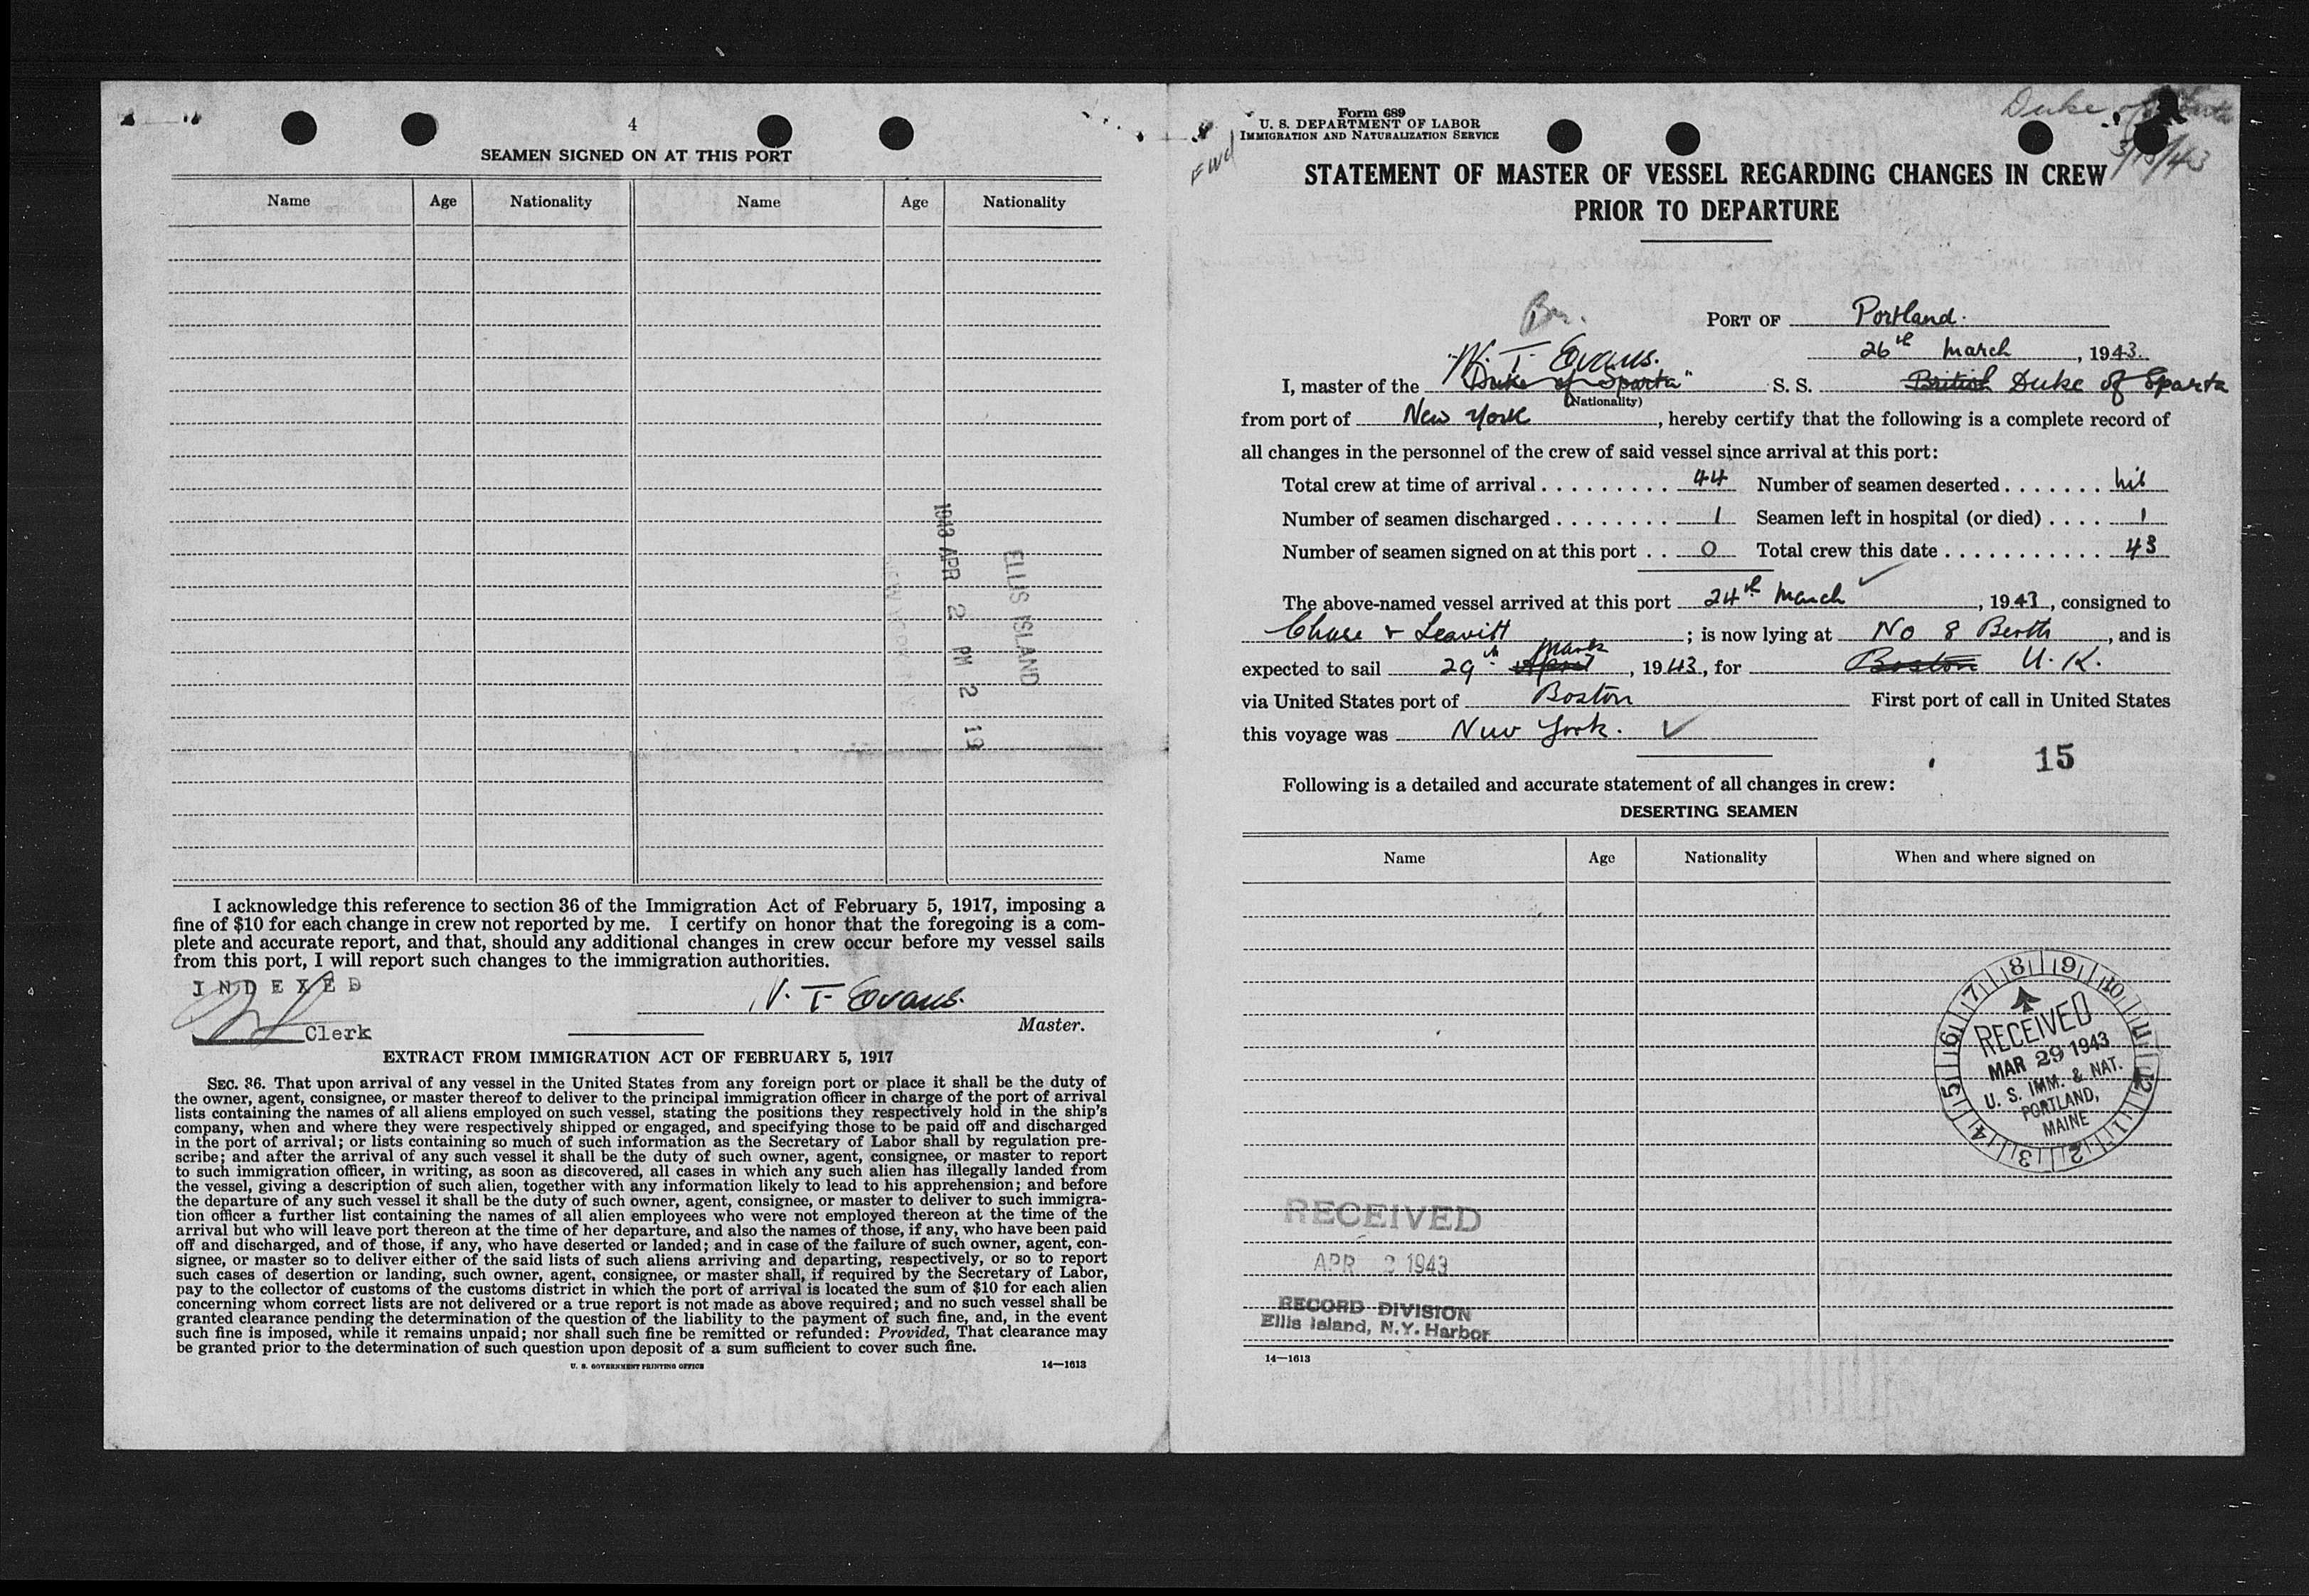 4
SEAMEN SIGNED ON AT THIS PORT
Name Age Nationality Name Age Nationality
1943 APR 2 PM 2 19
ELLIS ISLAND
I acknowledge this reference to section 36 of the Immigration Act of February 5, 1917, imposing a
fine of $10 for each change in crew not reported by me. I certify on honor that the foregoing is a com-
plete and accurate report, and that, should any additional changes in crew occur before my vessel sails
from this port, I will report such changes to the immigration authorities.
INDEXED
W. T. Evans.
Clerk
Master.
EXTRACT FROM IMMIGRATION ACT OF FEBRUARY 5, 1917
SEC. 36. That upon arrival of any vessel in the United States from any foreign port or place it shall be the duty of
the owner, agent, consignee, or master thereof to deliver to the principal immigration officer in charge of the port of arrival
lists containing the names of all aliens employed on such vessel, stating the positions they respectively hold in the ship's
company, when and where they were respectively shipped or engaged, and specifying those to be paid off and discharged
in the port of arrival; or lists containing so much of such information as the Secretary of Labor shall by regulation pre-
scribe; and after the arrival of any such vessel it shall be the duty of such owner, agent, consignee, or master to report
to such immigration officer, in writing, as soon as discovered, all cases in which any such alien has illegally landed from
the vessel, giving a description of such alien, together with any information likely to lead to his apprehension; and before
the departure of any such vessel it shall be the duty of such owner, agent, consignee, or master to deliver to such immigra-
tion officer a further list containing the names of all alien employees who were not employed thereon at the time of the
arrival but who will leave port thereon at the time of her departure, and also the names of those, if any, who have been paid
off and discharged, and of those, if any, who have deserted or landed; and in case of the failure of such owner, agent, con-
signee, or master so to deliver either of the said lists of such aliens arriving and departing, respectively, or so to report
such cases of desertion or landing, such owner, agent, consignee, or master shall, if required by the Secretary of Labor,
pay to the collector of customs of the customs district in which the port of arrival is located the sum of $10 for each alien
concerning whom correct lists are not delivered or a true report is not made as above required; and no such vessel shall be
granted clearance pending the determination of the question of the liability to the payment of such fine, and, in the event
such fine is imposed, while it remains unpaid; nor shall such fine be remitted or refunded: Provided, That clearance may
be granted prior to the determination of such question upon deposit of a sum sufficient to cover such fine.
U. S. GOVERNMENT PRINTING OFFICE 14—1613
Form 689
U. S. DEPARTMENT OF LABOR
IMMIGRATION AND NATURALIZATION SERVICE
Fwd
Duke of
3/15/43
STATEMENT OF MASTER OF VESSEL REGARDING CHANGES IN CREW
PRIOR TO DEPARTURE
Br.
PORT OF Portland.
26th March, 1943.
W. T. Evans.
I, master of the "Duke of Sparta" S. S. British Duke of Sparta
(Nationality)
from port of New York, hereby certify that the following is a complete record of
all changes in the personnel of the crew of said vessel since arrival at this port:
Total crew at time of arrival . . . . . . . . . 44 Number of seamen deserted . . . . . . . nil
Number of seamen discharged . . . . . . . . 1 Seamen left in hospital (or died) . . . . 1
Number of seamen signed on at this port . . 0 Total crew this date . . . . . . . . . . . . 43
The above-named vessel arrived at this port 24th March, 1943, consigned to
Chase & Leavitt; is now lying at No 8 Berth, and is
March
expected to sail 29th April, 1943, for Boston U. K.
via United States port of Boston First port of call in United States
this voyage was New York. ✓
15
Following is a detailed and accurate statement of all changes in crew:
DESERTING SEAMEN
Name Age Nationality When and where signed on
8 9 10 11 12 1 2 3 4 5 6 7
RECEIVED
MAR 29 1943
U. S. IMM. & NAT.
PORTLAND,
MAINE
RECEIVED
APR 2 1943
RECORD DIVISION
Ellis Island, N.Y. Harbor
14—1613